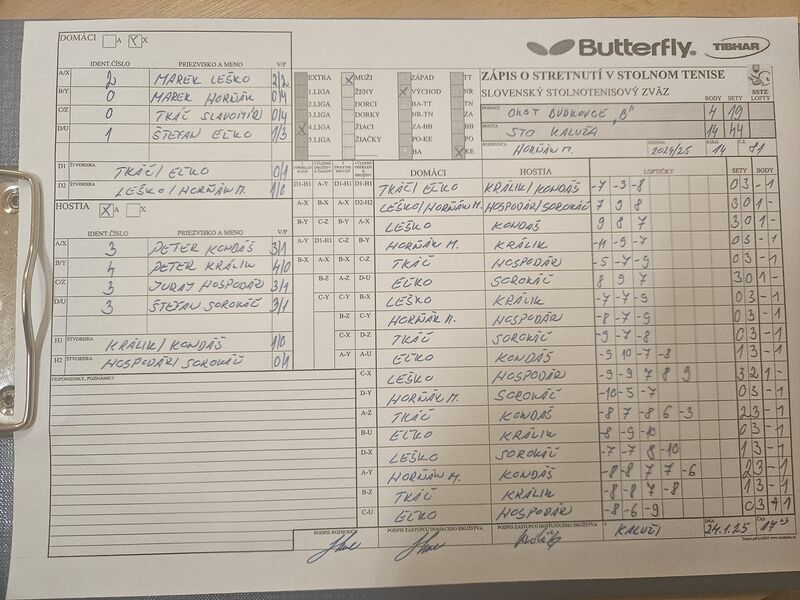 DOMÁCI A X
Butterfly TIBHAR
IDENT.ČÍSLO PRIEZVISKO A MENO V/P
A/X 2 MAREK LEŠKO 2/2
B/Y 0 MAREK HORŇÁK 0/4
C/Z 0 TKÁČ SLAVOMÍR 0/4
D/U 1 ŠTEFAN EĽKO 1/3
EXTRA MUŽI ZÁPAD TT
1.LIGA ŽENY VÝCHOD NR
2.LIGA DORCI BA-TT TN
3.LIGA DORKY NR-TN ZA
4.LIGA ŽIACI ZA-BB BB
5.LIGA ŽIAČKY PO-KE PO
BA KE
ZÁPIS O STRETNUTÍ V STOLNOM TENISE
SLOVENSKÝ STOLNOTENISOVÝ ZVÄZ SSTZ
BODY SETY LOPTY
DOMÁCI OKST BUDKOVCE "B" 4 19
HOSTIA STO KALUŽA 14 44
ROZHODCA HORŇÁK M. SEZÓNA 2024/25 KOLO 14 Č.
D1 ŠTVORHRA TKÁČ / EĽKO 0/1
D2 LEŠKO / HORŇÁK M. 1/0
HOSTIA X A X
IDENT.ČÍSLO PRIEZVISKO A MENO V/P
A/X 3 PETER KONDÁŠ 3/1
B/Y 4 PETER KRÁLIK 4/0
C/Z 3 JURAJ HOSPODÁR 3/1
D/U 3 ŠTEFAN SOROKÁČ 3/1
H1 ŠTVORHRA KRÁLIK / KONDÁŠ 1/0
H2 ŠTVORHRA HOSPODÁR / SOROKÁČ 0/1
PRIPOMIENKY, POZNÁMKY
DOMÁCI HOSTIA LOPTIČKY SETY BODY
D1-H1 A-Y D1-H1 D1-H1 TKÁČ / EĽKO KRÁLIK / KONDÁŠ -7 -9 -8 0 3 - 1
A-X B-X A-X D2-H2 LEŠKO / HORŇÁK M. HOSPODÁR / SOROKÁČ 7 9 8 3 0 1 -
B-Y C-Z B-Y A-X LEŠKO KONDÁŠ 9 8 7 3 0 1 -
A-Y D1-H1 C-Z B-Y HORŇÁK M. KRÁLIK -11 -9 -7 0 3 - 1
B-X A-X B-X C-Z TKÁČ HOSPODÁR -5 -7 -9 0 3 - 1
B-Z A-Z D-U EĽKO SOROKÁČ 8 9 7 3 0 1 -
C-Y C-Y B-X LEŠKO KRÁLIK -7 -7 -9 0 3 - 1
B-Z C-Y HORŇÁK M. HOSPODÁR -8 -7 -9 0 3 - 1
C-X D-Z TKÁČ SOROKÁČ -9 -7 -8 0 3 - 1
A-Y A-U EĽKO KONDÁŠ -9 10 -7 -8 1 3 - 1
C-X LEŠKO HOSPODÁR -9 -9 7 8 9 3 2 1 -
D-Y HORŇÁK M. SOROKÁČ -10 -5 -7 0 3 - 1
A-Z TKÁČ KONDÁŠ -8 7 -8 6 -3 2 3 - 1
B-U EĽKO KRÁLIK -8 -9 -10 0 3 - 1
D-X LEŠKO SOROKÁČ -7 -7 8 -10 1 3 - 1
A-Y HORŇÁK M. KONDÁŠ -8 -8 7 7 -6 2 3 - 1
B-Z TKÁČ KRÁLIK -8 -8 7 -8 1 3 - 1
C-U EĽKO HOSPODÁR -8 -6 -9 0 3 - 1
PODPIS ROZHODCU PODPIS ZÁSTUPCU DOMÁCEHO DRUŽSTVA PODPIS ZÁSTUPCU HOSŤUJÚCEHO DRUŽSTVA V KALUŽI DŇA 24.1.25 ČAS